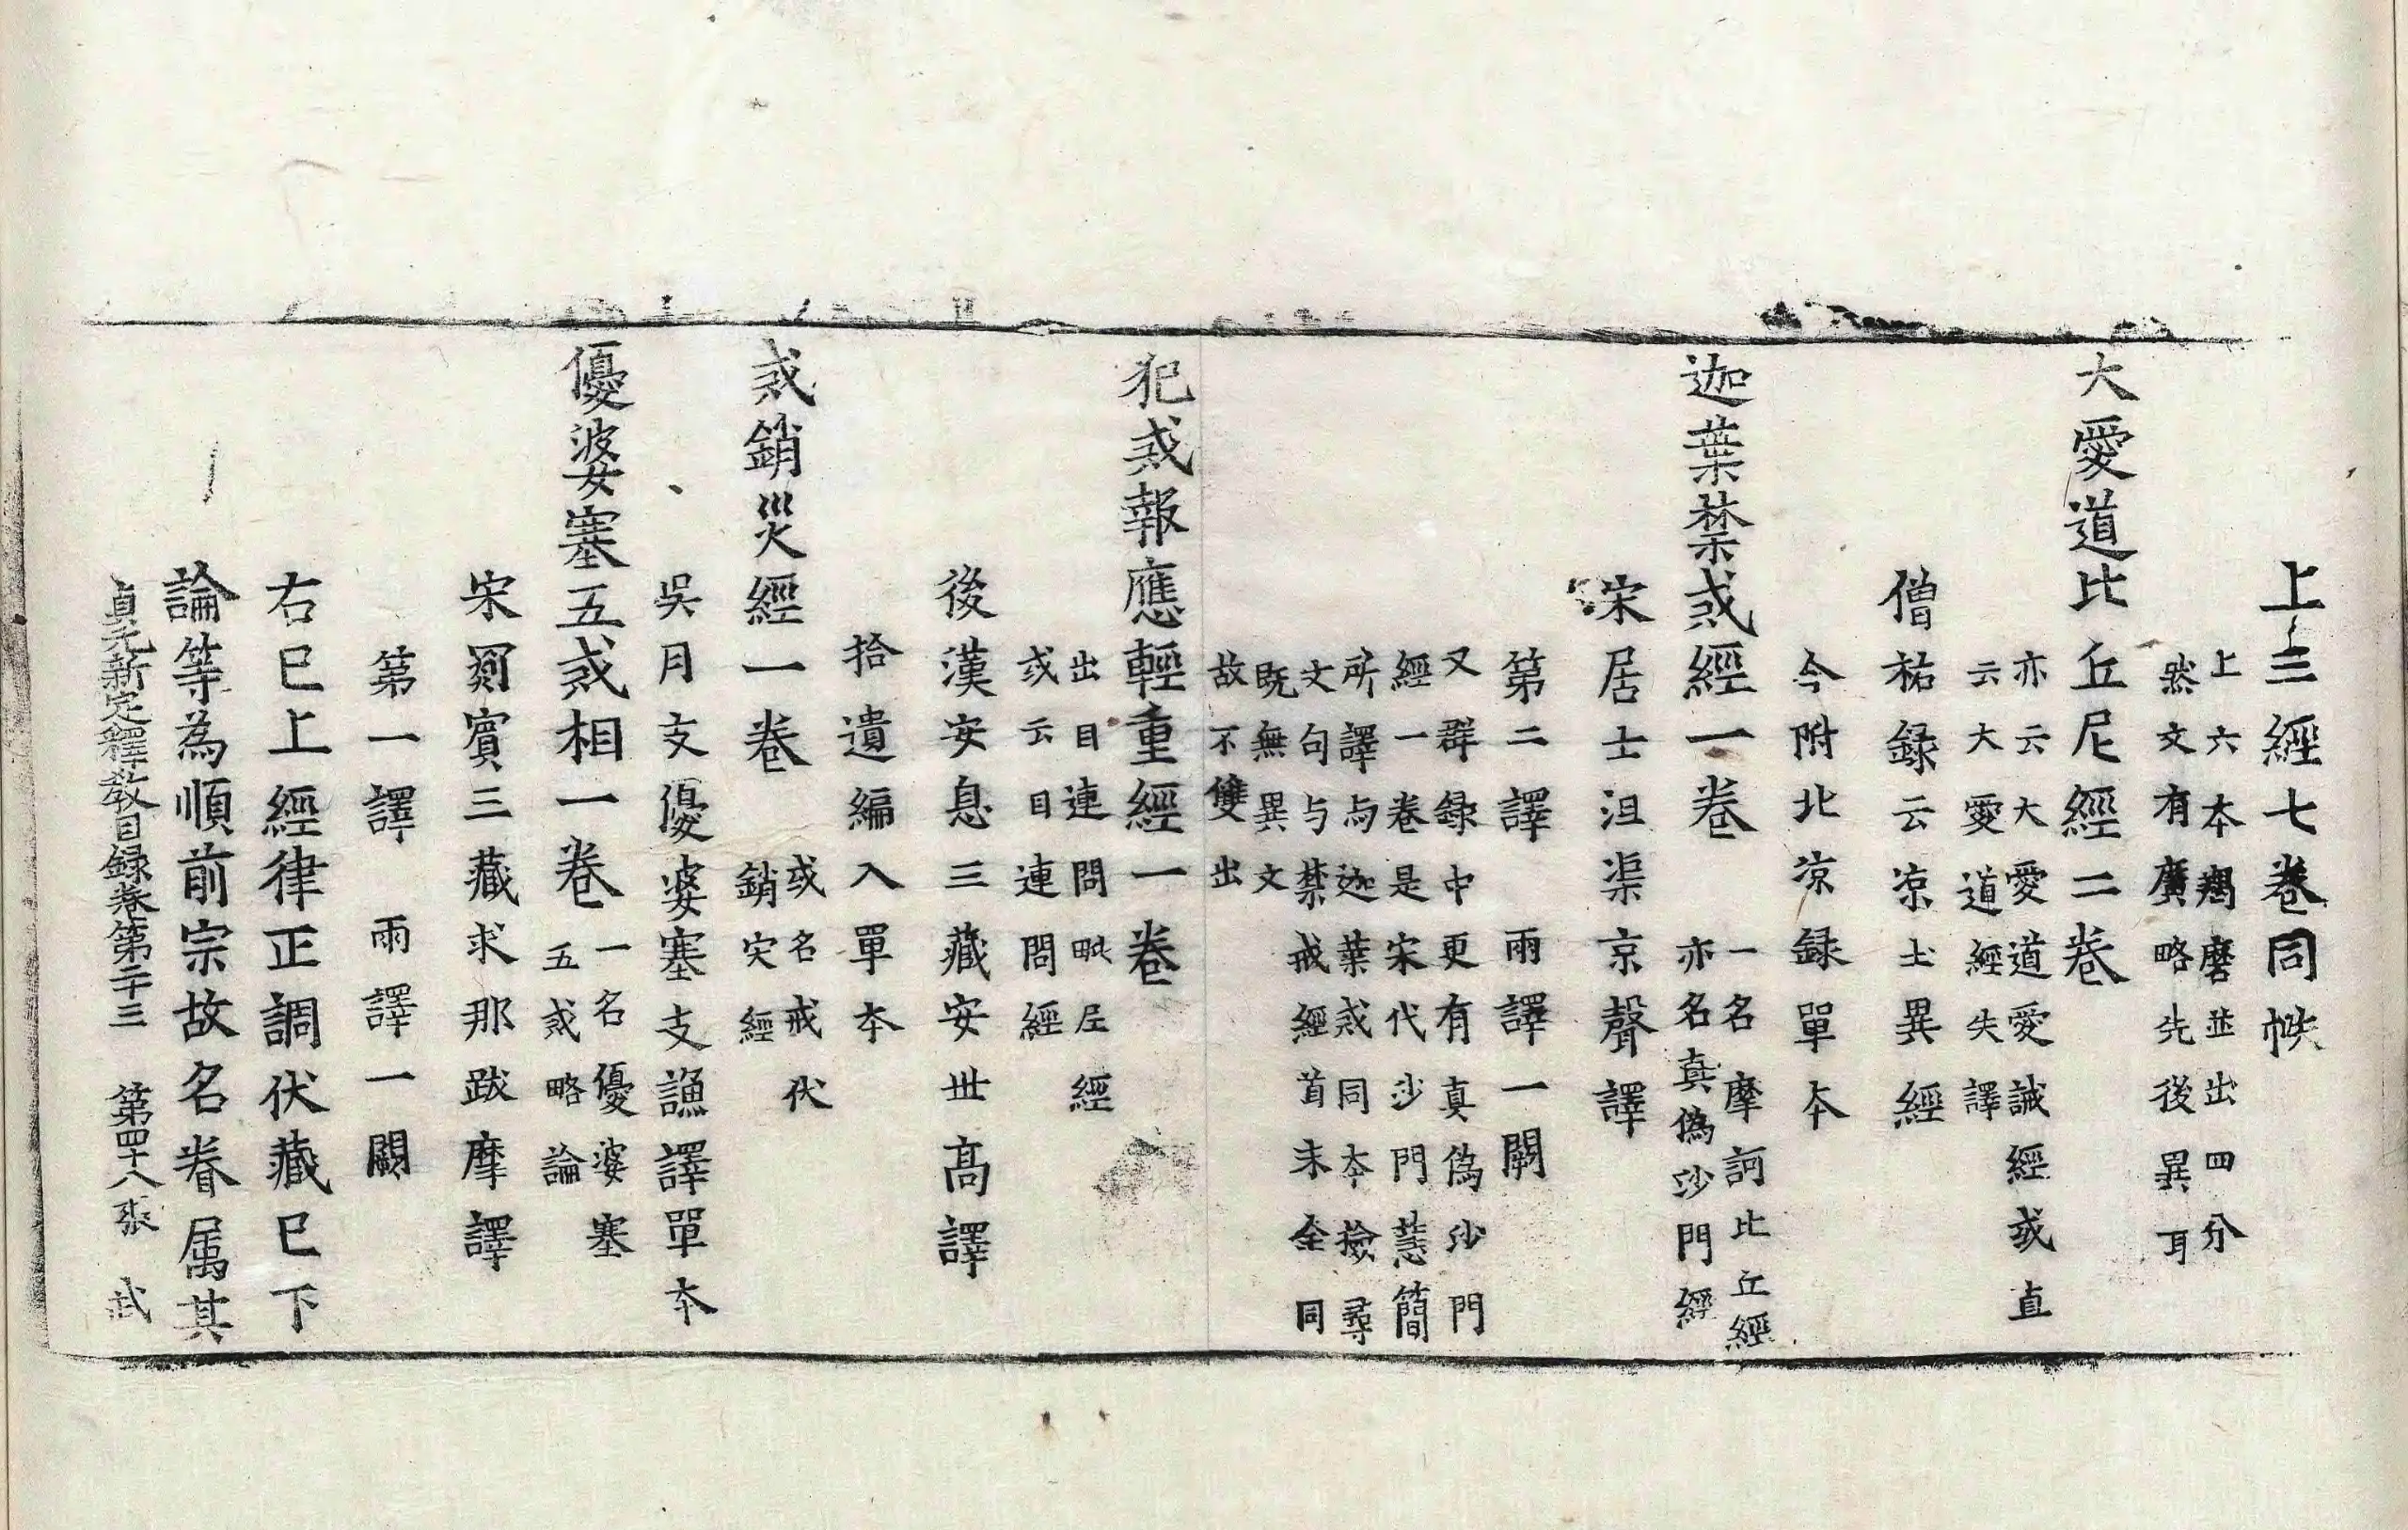 上三經七卷同帙
上六本羯磨並出四分
然文有廣略先後異耳
大愛道比丘尼經二卷
亦云大愛道愛誡經或直
云大愛道經失譯
僧祐録云涼土異經
今附北涼録單本
迦葉禁戒經一卷
一名摩訶比丘經
亦名真偽沙門經
宋居士沮渠京聲譯
第二譯兩譯一闕
又群録中更有真偽沙門
經一卷是宋代沙門慧簡
所譯与迦葉戒同本撿尋
文句与禁戒經首末全同
既無異文
故不雙出
犯戒報應輕重經一卷
出目連問毗尼經
或云目連問經
後漢安息三藏安世高譯
拾遺編入單本
戒銷災經一卷
或名戒伏
銷灾經
吳月支優婆塞支謙譯單本
優婆塞五戒相一卷
一名優婆塞
五戒略論
宋罽賓三藏求那跋摩譯
第一譯 兩譯一闕
右已上經律正調伏藏已下
論等為順前宗故名眷属其
貞元新定釋教目録卷第二十三 第四十八張 武